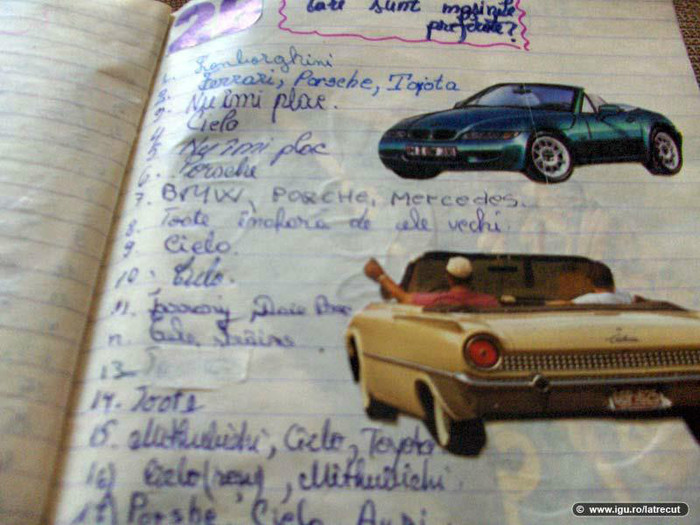 Care sunt mașinile
preferate?
1. Lomborghini
2. Ferrari, Porsche, Toyota
3. Nu îmi plac.
4 Cielo
5 Nu îmi plac
6. Porsche
7. BMW, PORCHE, Mercedes.
8. Toate înafară de ele vechi.
9. Cielo.
10. Cielo.
11.
12
13
14. Toate
15. Mithubichi, Cielo, Toyota
16) Cielo, Mithubichi.
17) Porshe, Cielo, Audi
© www.igu.ro/latrecut